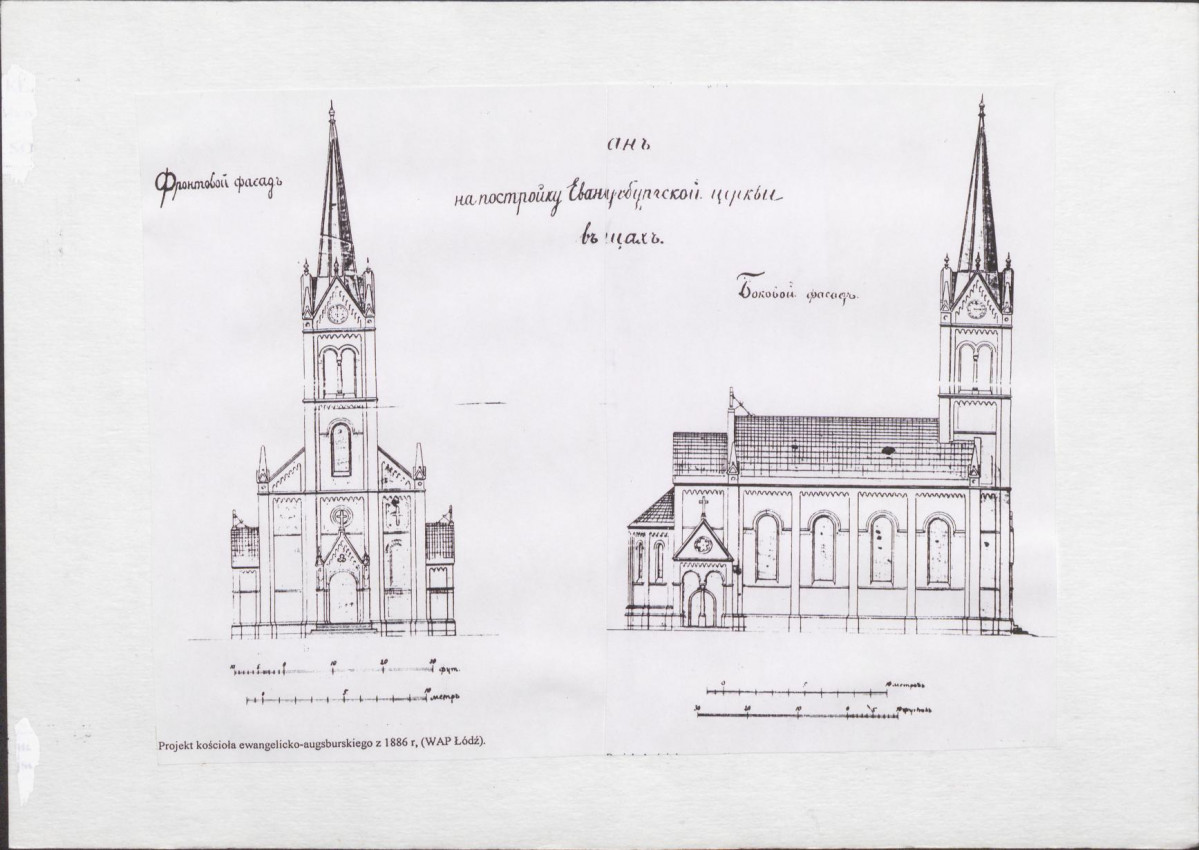 Фронтовой фасадъ
анъ
на постройку Евангурбупгской церкви
въ щахъ.
Боковой фасадъ.
10 5 0 10 20 30 фут.
0 5 10 метръ
0 5 10 метровъ
30 20 10 0 5 10 футовъ
Projekt kościoła ewangelicko-augsburskiego z 1886 r, (WAP Łódź).